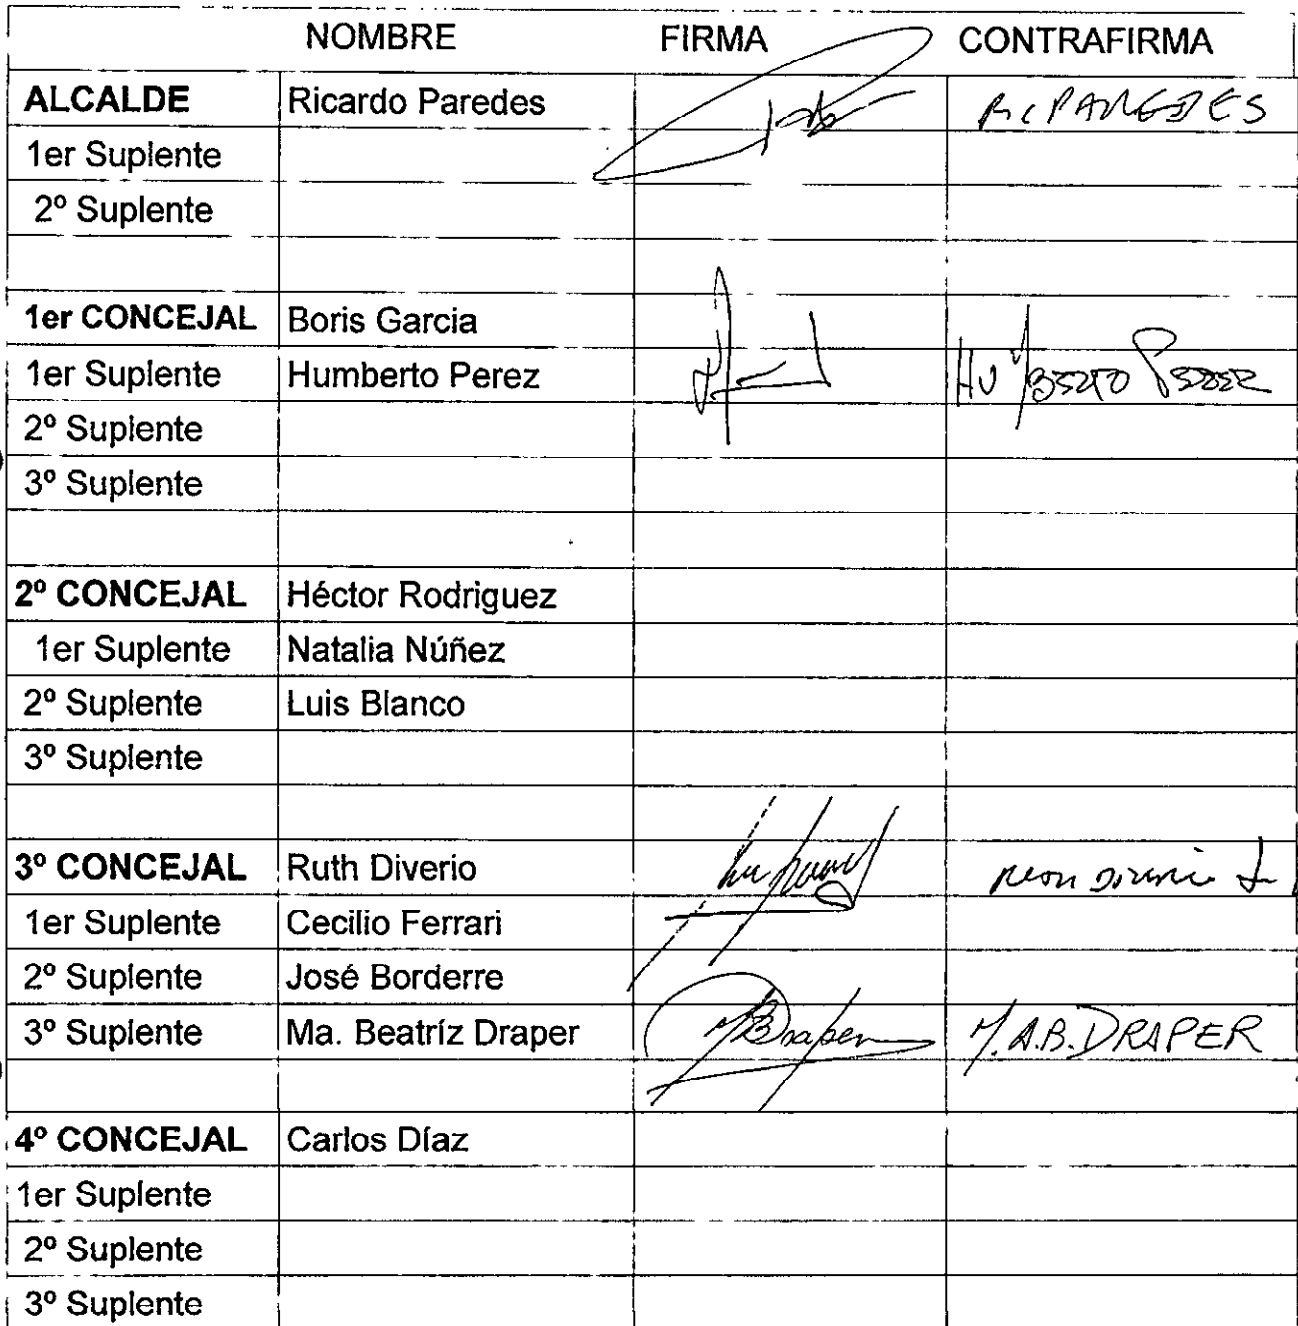 NOMBRE FIRMA CONTRAFIRMA
ALCALDE Ricardo Paredes PAREDES
1er Suplente
2º Suplente
1er CONCEJAL Boris Garcia
1er Suplente Humberto Perez Humberto Perez
2º Suplente
3º Suplente
2º CONCEJAL Héctor Rodriguez
1er Suplente Natalia Núñez
2º Suplente Luis Blanco
3º Suplente
3º CONCEJAL Ruth Diverio
1er Suplente Cecilio Ferrari
2º Suplente José Borderre
3º Suplente Ma. Beatríz Draper MBDraper M.A.B. DRAPER
4º CONCEJAL Carlos Díaz
1er Suplente
2º Suplente
3º Suplente